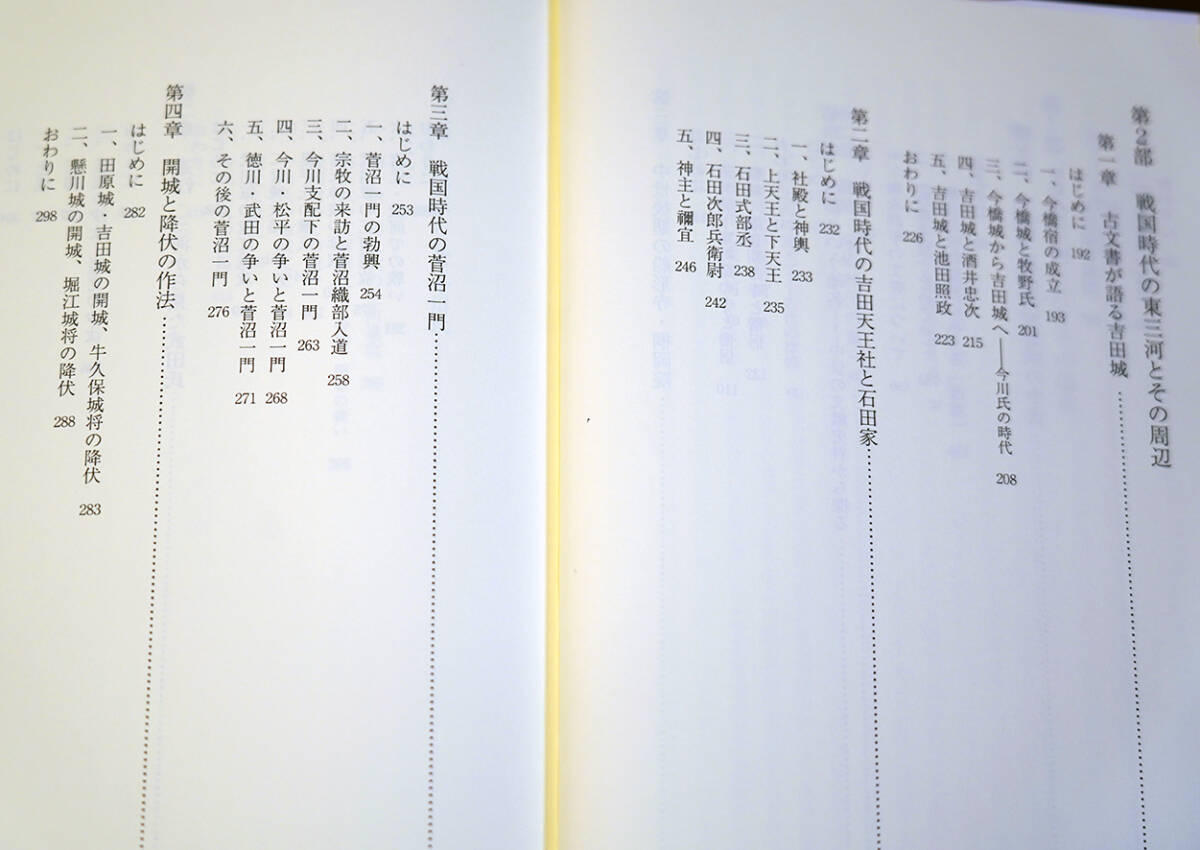 第2部　戦国時代の東三河とその周辺
第一章　古文書が語る吉田城……………………
はじめに　192
一、今橋宿の成立　193
二、今橋城と牧野氏　201
三、今橋城から吉田城へ――今川氏の時代　208
四、吉田城と酒井忠次　215
五、吉田城と池田照政　223
おわりに　226
第二章　戦国時代の吉田天王社と石田家……………………
はじめに　232
一、社殿と神輿　233
二、上天王と下天王　235
三、石田式部丞　238
四、石田次郎兵衛尉　242
五、神主と禰宜　246
第三章　戦国時代の菅沼一門……………………
はじめに　253
一、菅沼一門の勃興　254
二、宗牧の来訪と菅沼織部入道　258
三、今川支配下の菅沼一門　263
四、今川・松平の争いと菅沼一門　268
五、徳川・武田の争いと菅沼一門　271
六、その後の菅沼一門　276
第四章　開城と降伏の作法……………………
はじめに　282
一、田原城・吉田城の開城、牛久保城将の降伏　283
二、懸川城の開城、堀江城将の降伏　288
おわりに　298